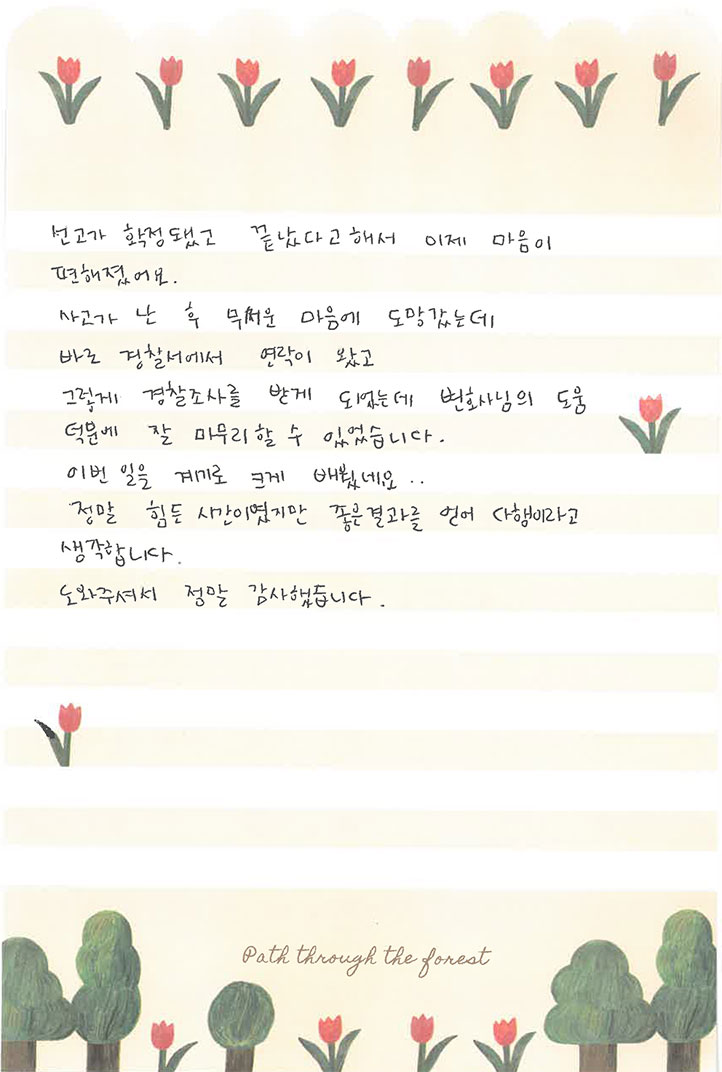 선고가 확정됐고 끝났다고해서 이제 마음이
편해졌어요.
사고가 난 후 무서운 마음에 도망갔는데
바로 경찰서에서 연락이 왔고
그렇게 경찰조사를 받게 되었는데 변호사님의 도움
덕분에 잘 마무리할 수 있었습니다.
이번 일을 계기로 크게 배웠네요..
정말 힘든 시간이였지만 좋은결과를 얻어 다행이라고
생각합니다.
도와주셔서 정말 감사했습니다.
Path through the forest